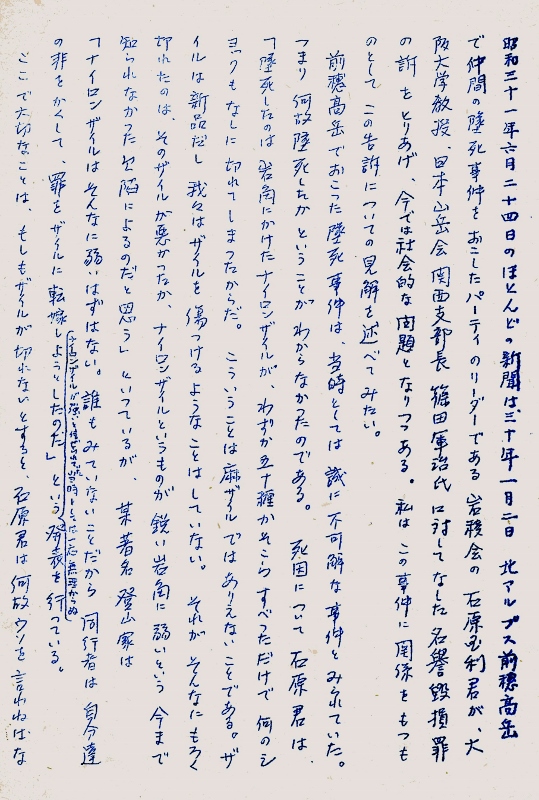 昭和三十一年六月二十四日のほとんどの新聞は、三十年一月二日 北アルプス前穂高岳
で仲間の墜死事件をおこしたパーティのリーダーである 岩稜会の 石原国利君が、大
阪大学教授、日本山岳会関西支部長 篠田軍治氏に対してなした名誉毀損罪
の訴をとりあげ、今では社会的な問題となりつつある。私はこの事件に関係をもつも
のとして この告訴についての見解を述べてみたい。
前穂高岳でおこった墜死事件は、当時としては 誠に不可解な事件とみられていた。
つまり 何故墜死したかということが わからなかったのである。 死因について 石原君は、
「墜死したのは 岩角にかけたナイロンザイルが、わずか五十糎かそこらすべっただけで 何のシ
ョックもなしに切れてしまったからだ。 こういうことは麻ザイルではありえないことである。ザ
イルは新品だし 我々はザイルを 傷つけるようなことはしていない。 それが そんなにもろく
切れたのは、そのザイルが悪かったか、ナイロンザイルというものが 鋭い岩角に弱いという 今まで
知られなかった欠陥によるのだと思う」といっているが、 某著名登山家は
「ナイロンザイルはそんなに弱いはずはない。誰もみていないことだから 同行者は 自分達
の非をかくして、罪をザイルに転嫁しようとしたのだ」という 発表を行っている。
(ナイロンザイルが強いと信ぜられていた当時としては一応無理からぬ
ここで大切なことは、もしもザイルが切れないとすると 石原君は何故ウソを言わねばな